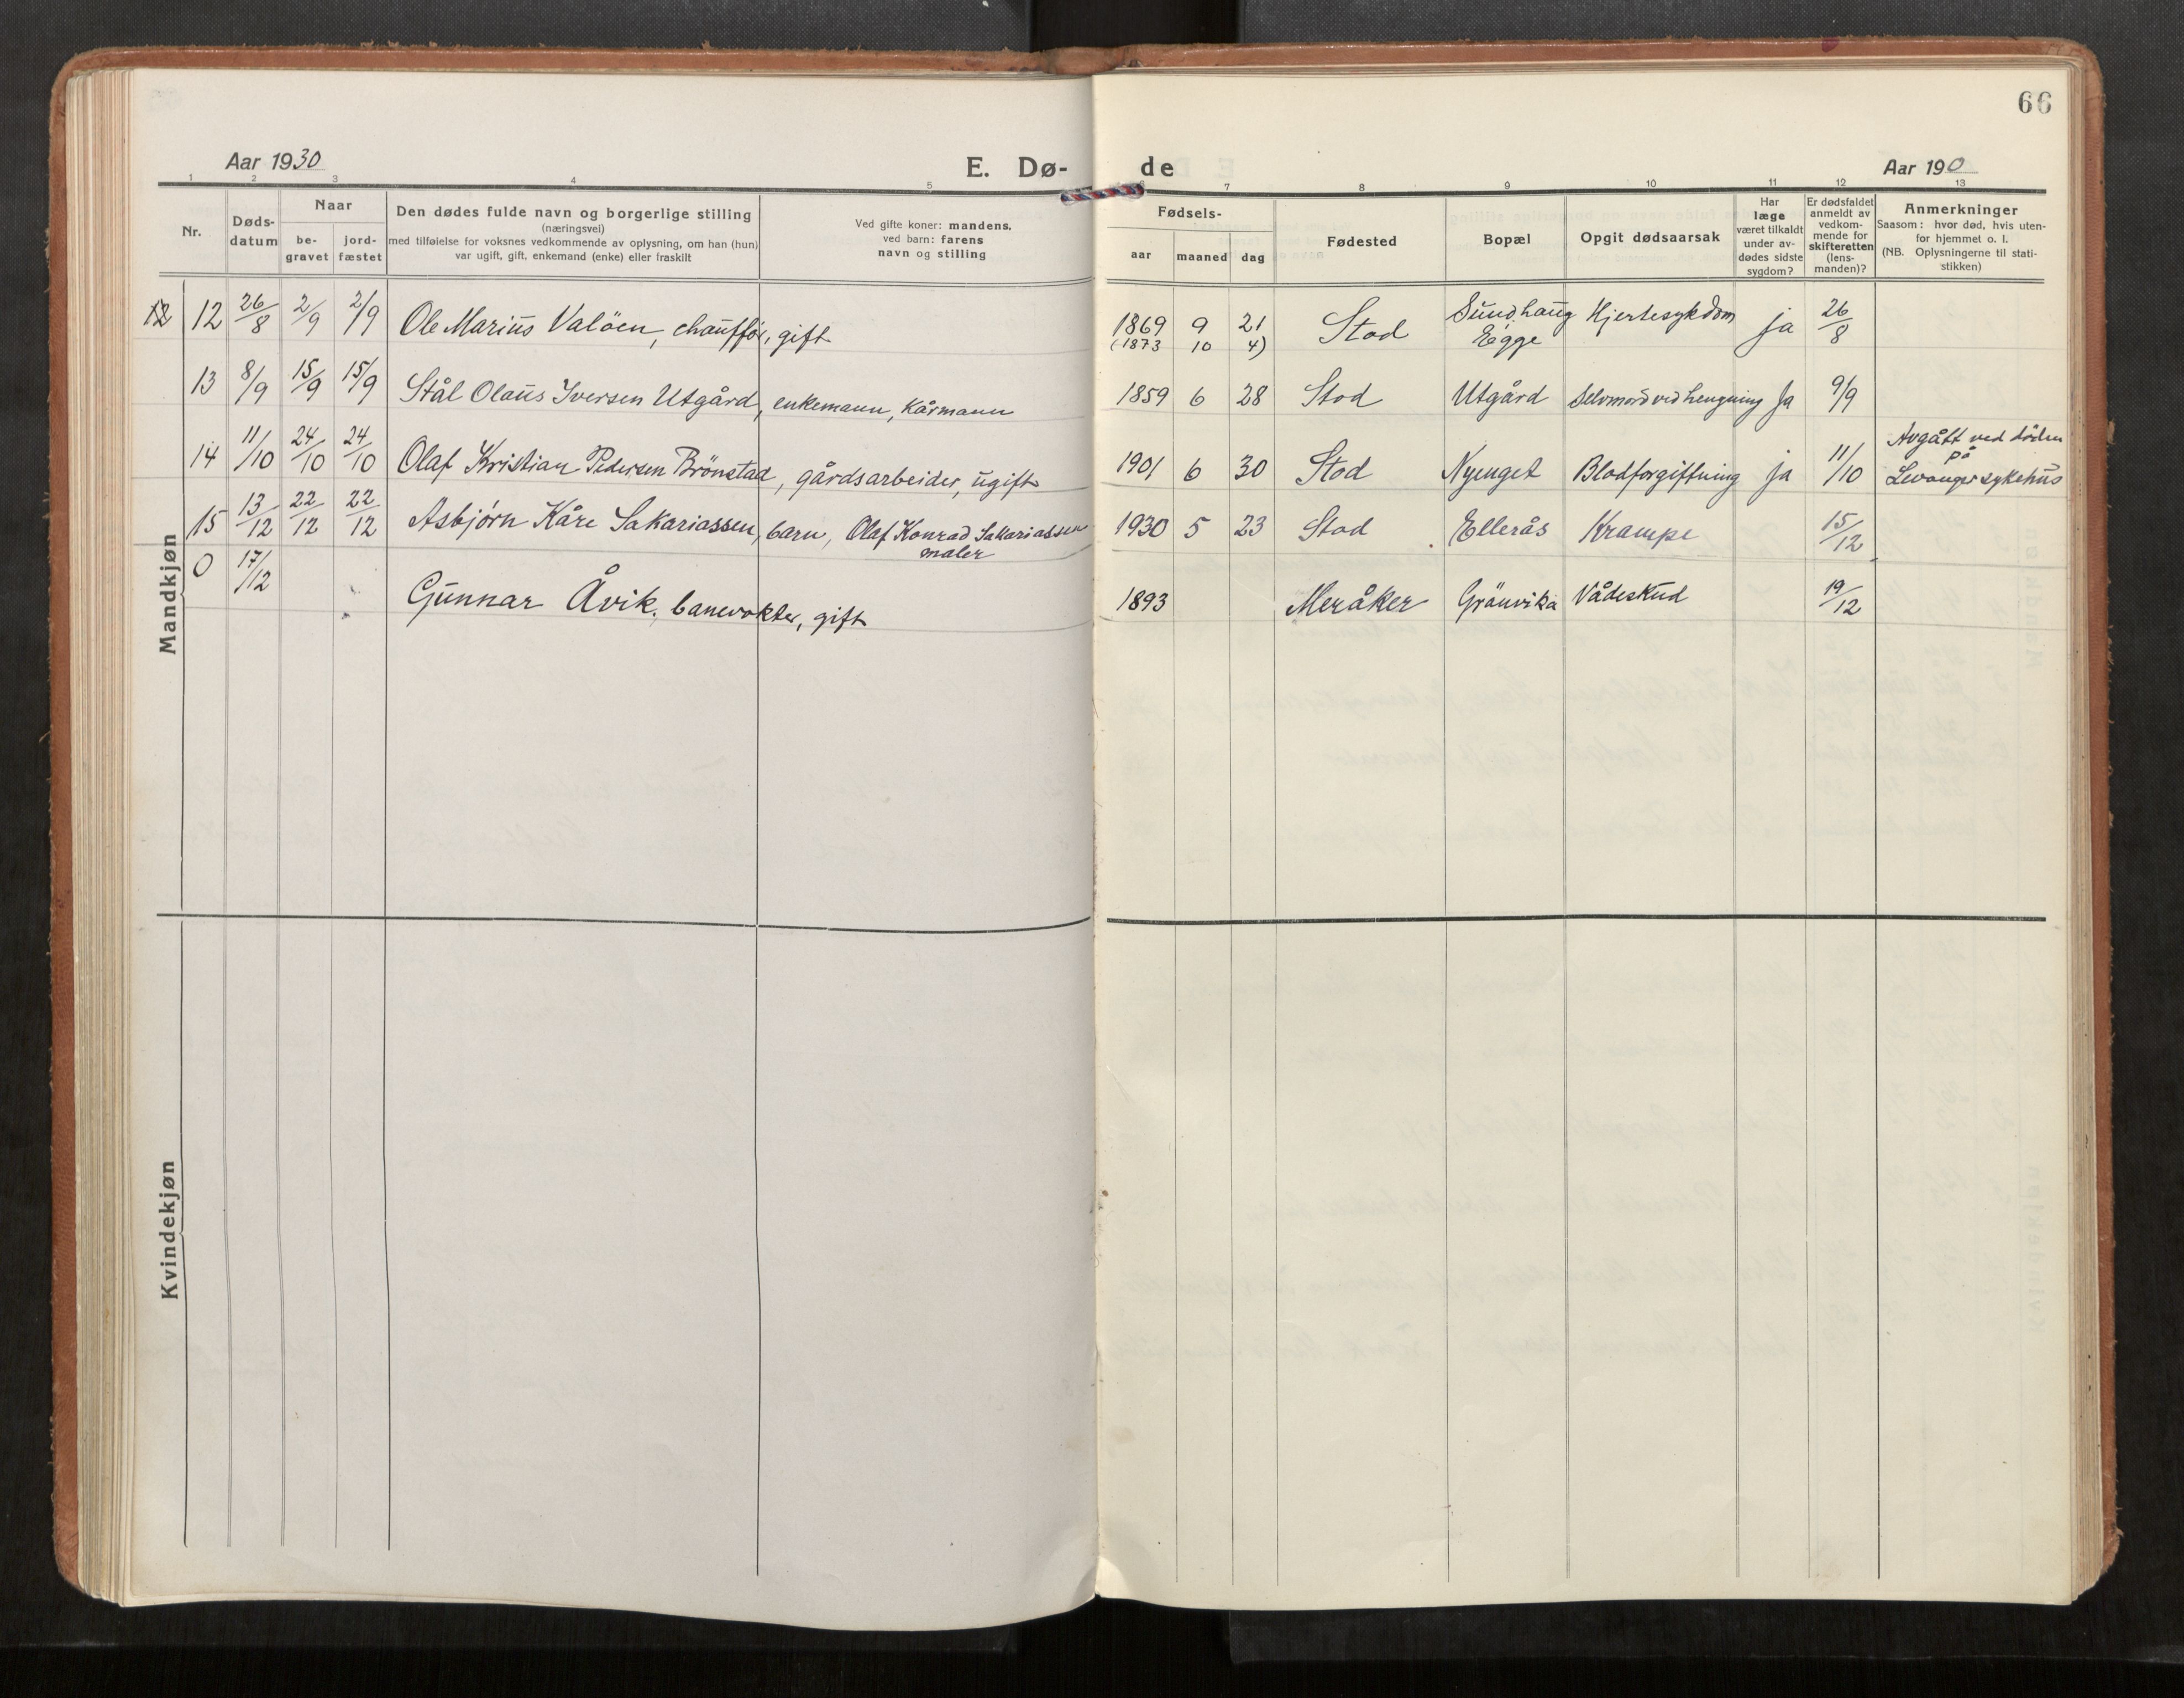 66
Aar 1930
E. Dø-
de
Aar 190
1 2 3 4 5 6 7 8 9 10 11 12 13
Nr.
Døds-
datum
Naar
be-
gravet
jord-
fæstet
Den dødes fulde navn og borgerlige stilling
(næringsvei)
med tilføielse for voksnes vedkommende av oplysning, om han (hun)
var ugift, gift, enkemand (enke) eller fraskilt
Ved gifte koner: mandens.
ved barn: farens
navn og stilling
Fødsels-
aar
maaned
dag
Fødested
Bopæl
Opgit dødsaarsak
Har
læge
været tilkaldt
under av-
dødes sidste
sygdom?
Er dødsfaldet
anmeldt av
vedkom-
mende for
skifteretten
(lens-
manden)?
Anmerkninger
Saasom: hvor død, hvis uten-
for hjemmet o. l.
(NB. Oplysningerne til stati-
stikken)
Mandkjøn
12 12 26/8 2/9 2/9 Ole Marius Valöen, chaufför, gift 1869 9 21 Stod Sundhaug Hjertesykdom ja 26/8
(1873 10 4) Egge
13 8/9 15/9 15/9 Stål Olaus Iversen Utgård, enkemann, kårmann 1859 6 28 Stod Utgård Selvmord ved hengning Ja 9/9
14 11/10 24/10 24/10 Olaf Kristian Pedersen Brönstad, gårdsarbeider, ugift 1901 6 30 Stod Nyenget Blodforgiftning ja 11/10 Avgått ved döden
på
Levanger sykehus
15 13/12 22/12 22/12 Asbjørn Kåre Sakariassen, barn, Olaf Konrad Sakariassen 1930 5 23 Stod Ellerås Krampe 15/12
maler
0 17/12 Gunnar Åvik, banevokter, gift 1893 Meråker Grönvika Vådeskud 19/12
Kvindekjøn